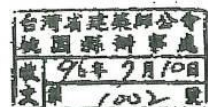 台灣省建築師公會
桃園縣辦事處
收文
96年9月10日
第1002號